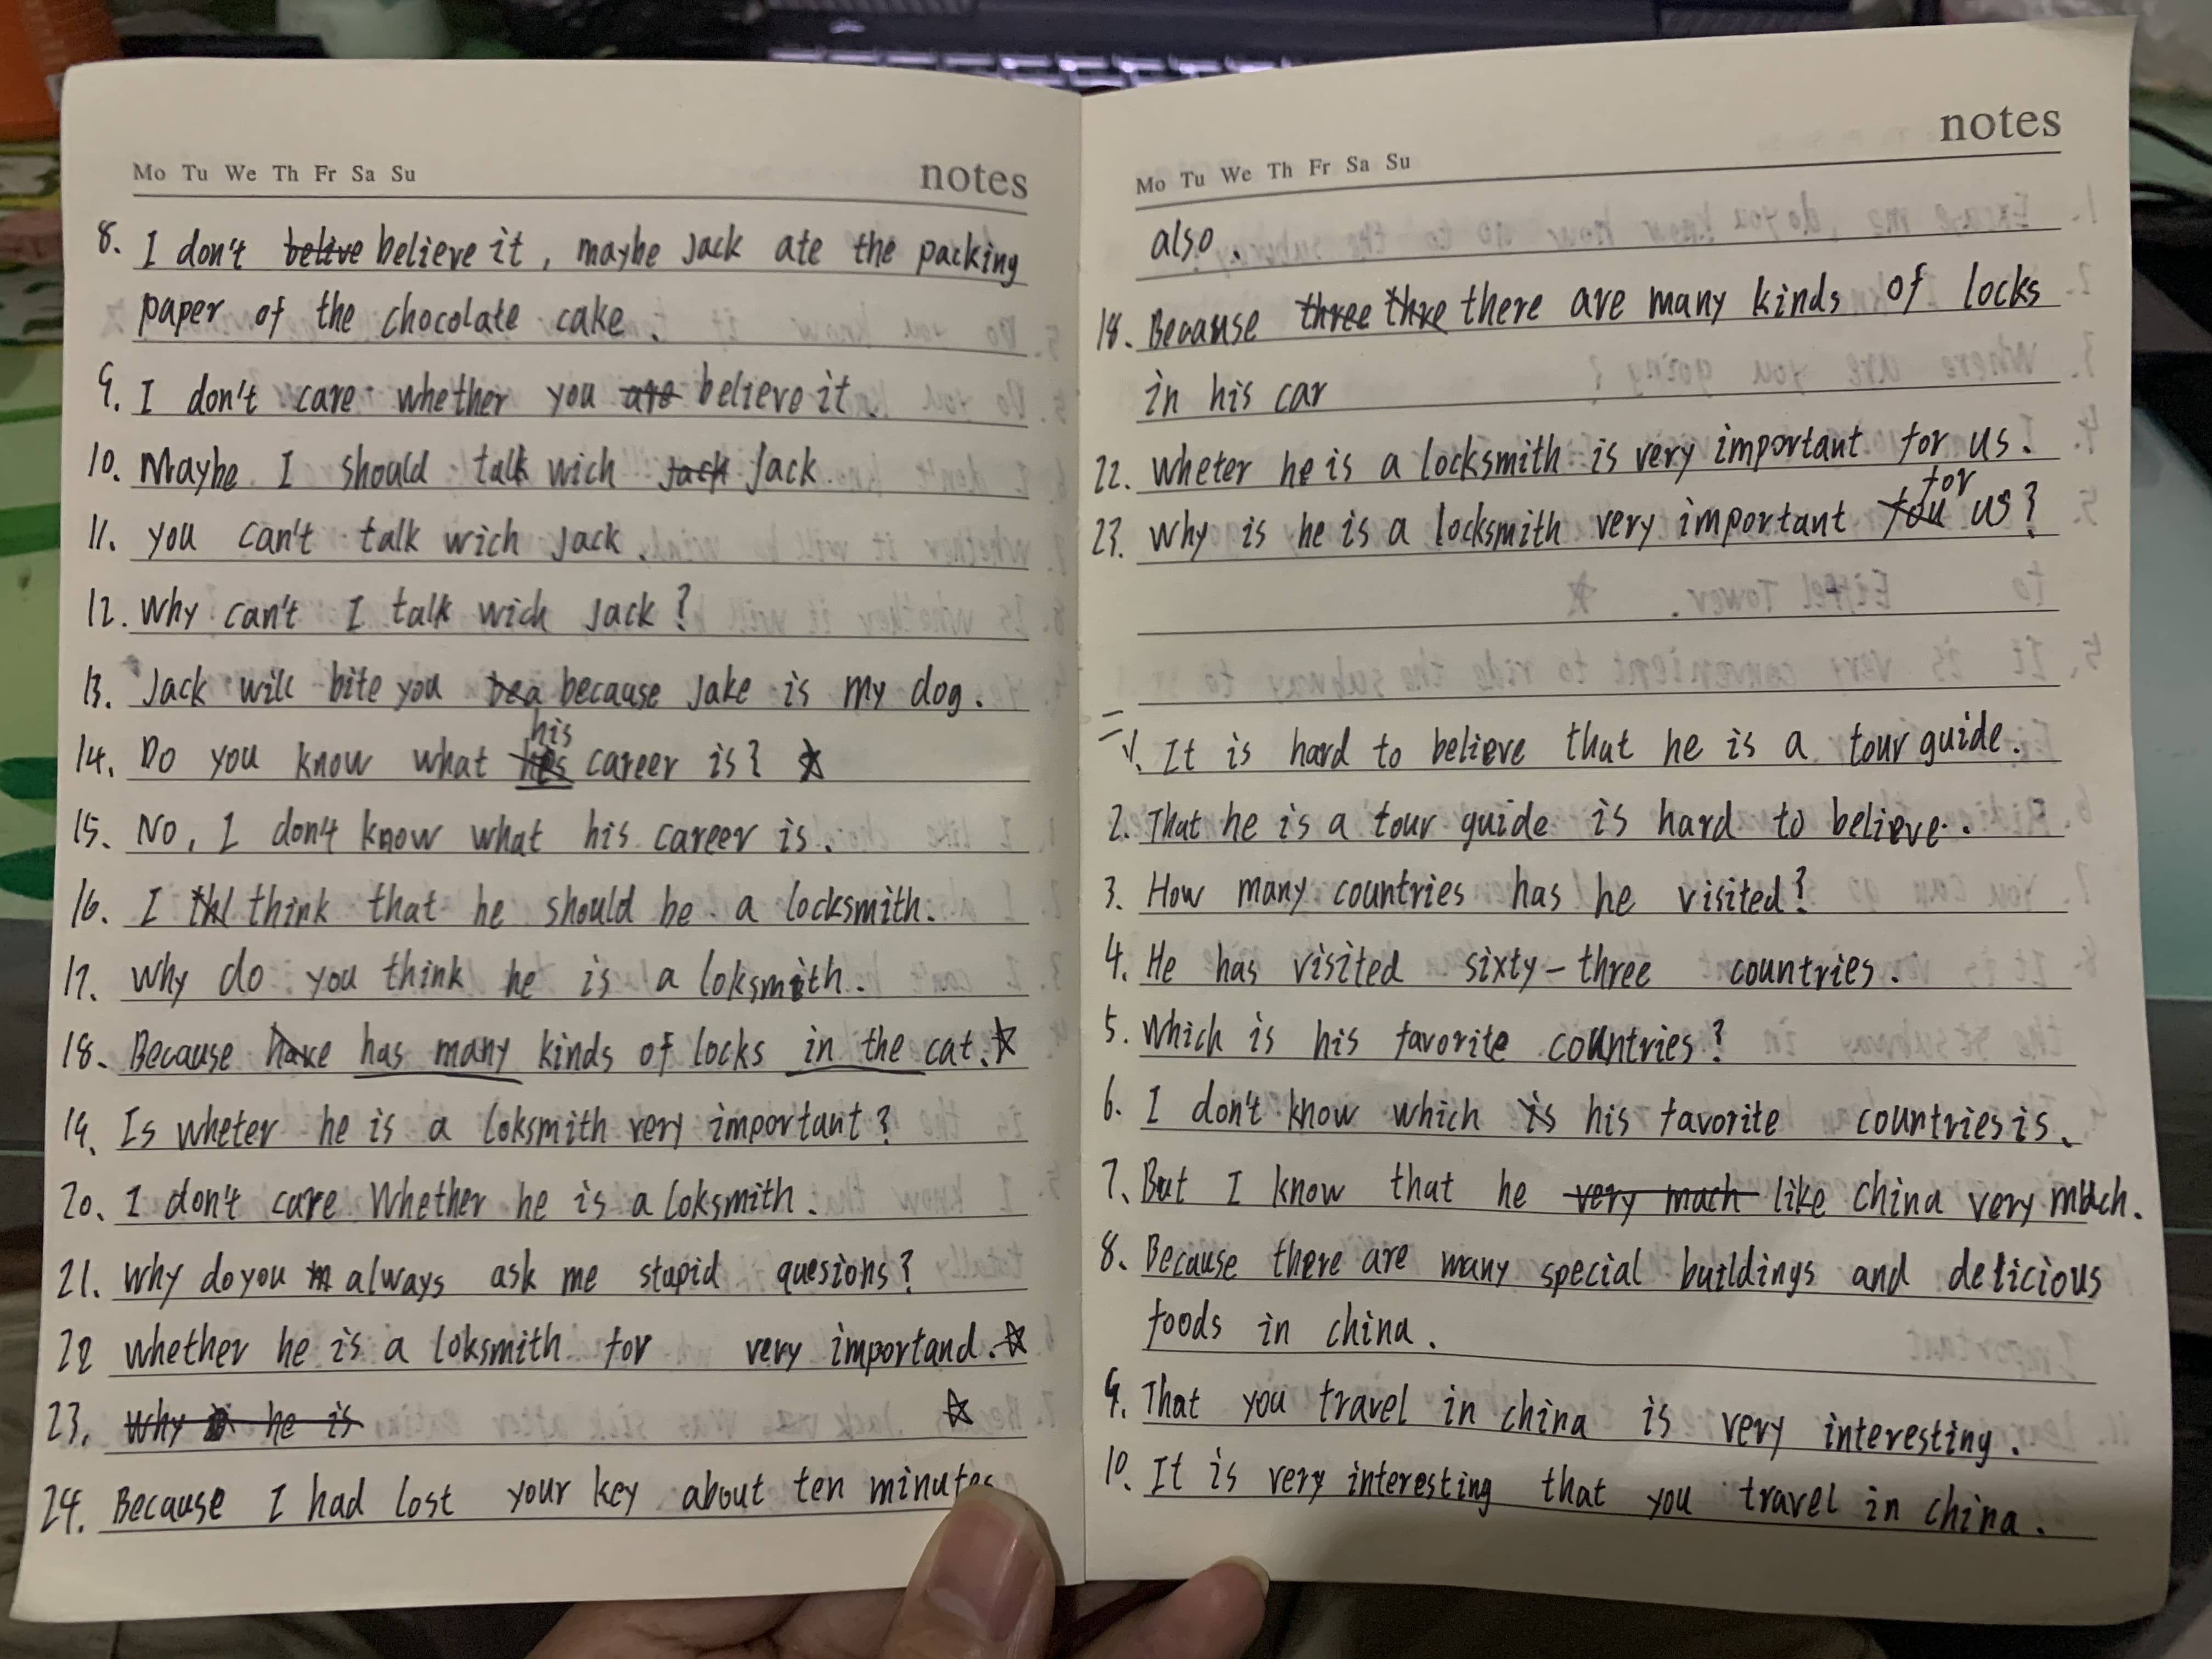 Mo Tu We Th Fr Sa Su notes
8. I don't belive believe it, maybe Jack ate the packing
paper of the chocolate cake.
9. I don't care whether you are believe it.
10. Maybe I should talk wich Jack Jack.
11. you can't talk wich Jack.
12. Why can't I talk wich Jack?
13. Jack will bite you bea because Jake is my dog.
his
14. Do you know what hes career is? ☆
15. No, I don't know what his career is.
16. I thi think that he should be a locksmith.
17. Why do you think he is a loksmith.
18. Because have has many kinds of locks in the cat. ☆
19. Is wheter he is a loksmith very important?
20. I don't care Whether he is a loksmith.
21. Why do you m always ask me stupid quesions?
22 whether he is a loksmith for very importand. ☆
23. Why is he is ☆
24. Because I had lost your key about ten minutes
Mo Tu We Th Fr Sa Su notes
also.
18. Because three thre there are many kinds of locks
in his car
22. wheter he is a locksmith is very important for us.
for
23. Why is he is a locksmith very important you us?
1. It is hard to believe that he is a tour guide.
2. That he is a tour guide is hard to believe.
3. How many countries has he visited?
4. He has visited sixty-three countries.
5. Which is his favorite countries?
6. I don't know which is his favorite countries is.
7. But I know that he very much like china very much.
8. Because there are many special buildings and delicious
foods in china.
9. That you travel in china is very interesting.
10. It is very interesting that you travel in china.